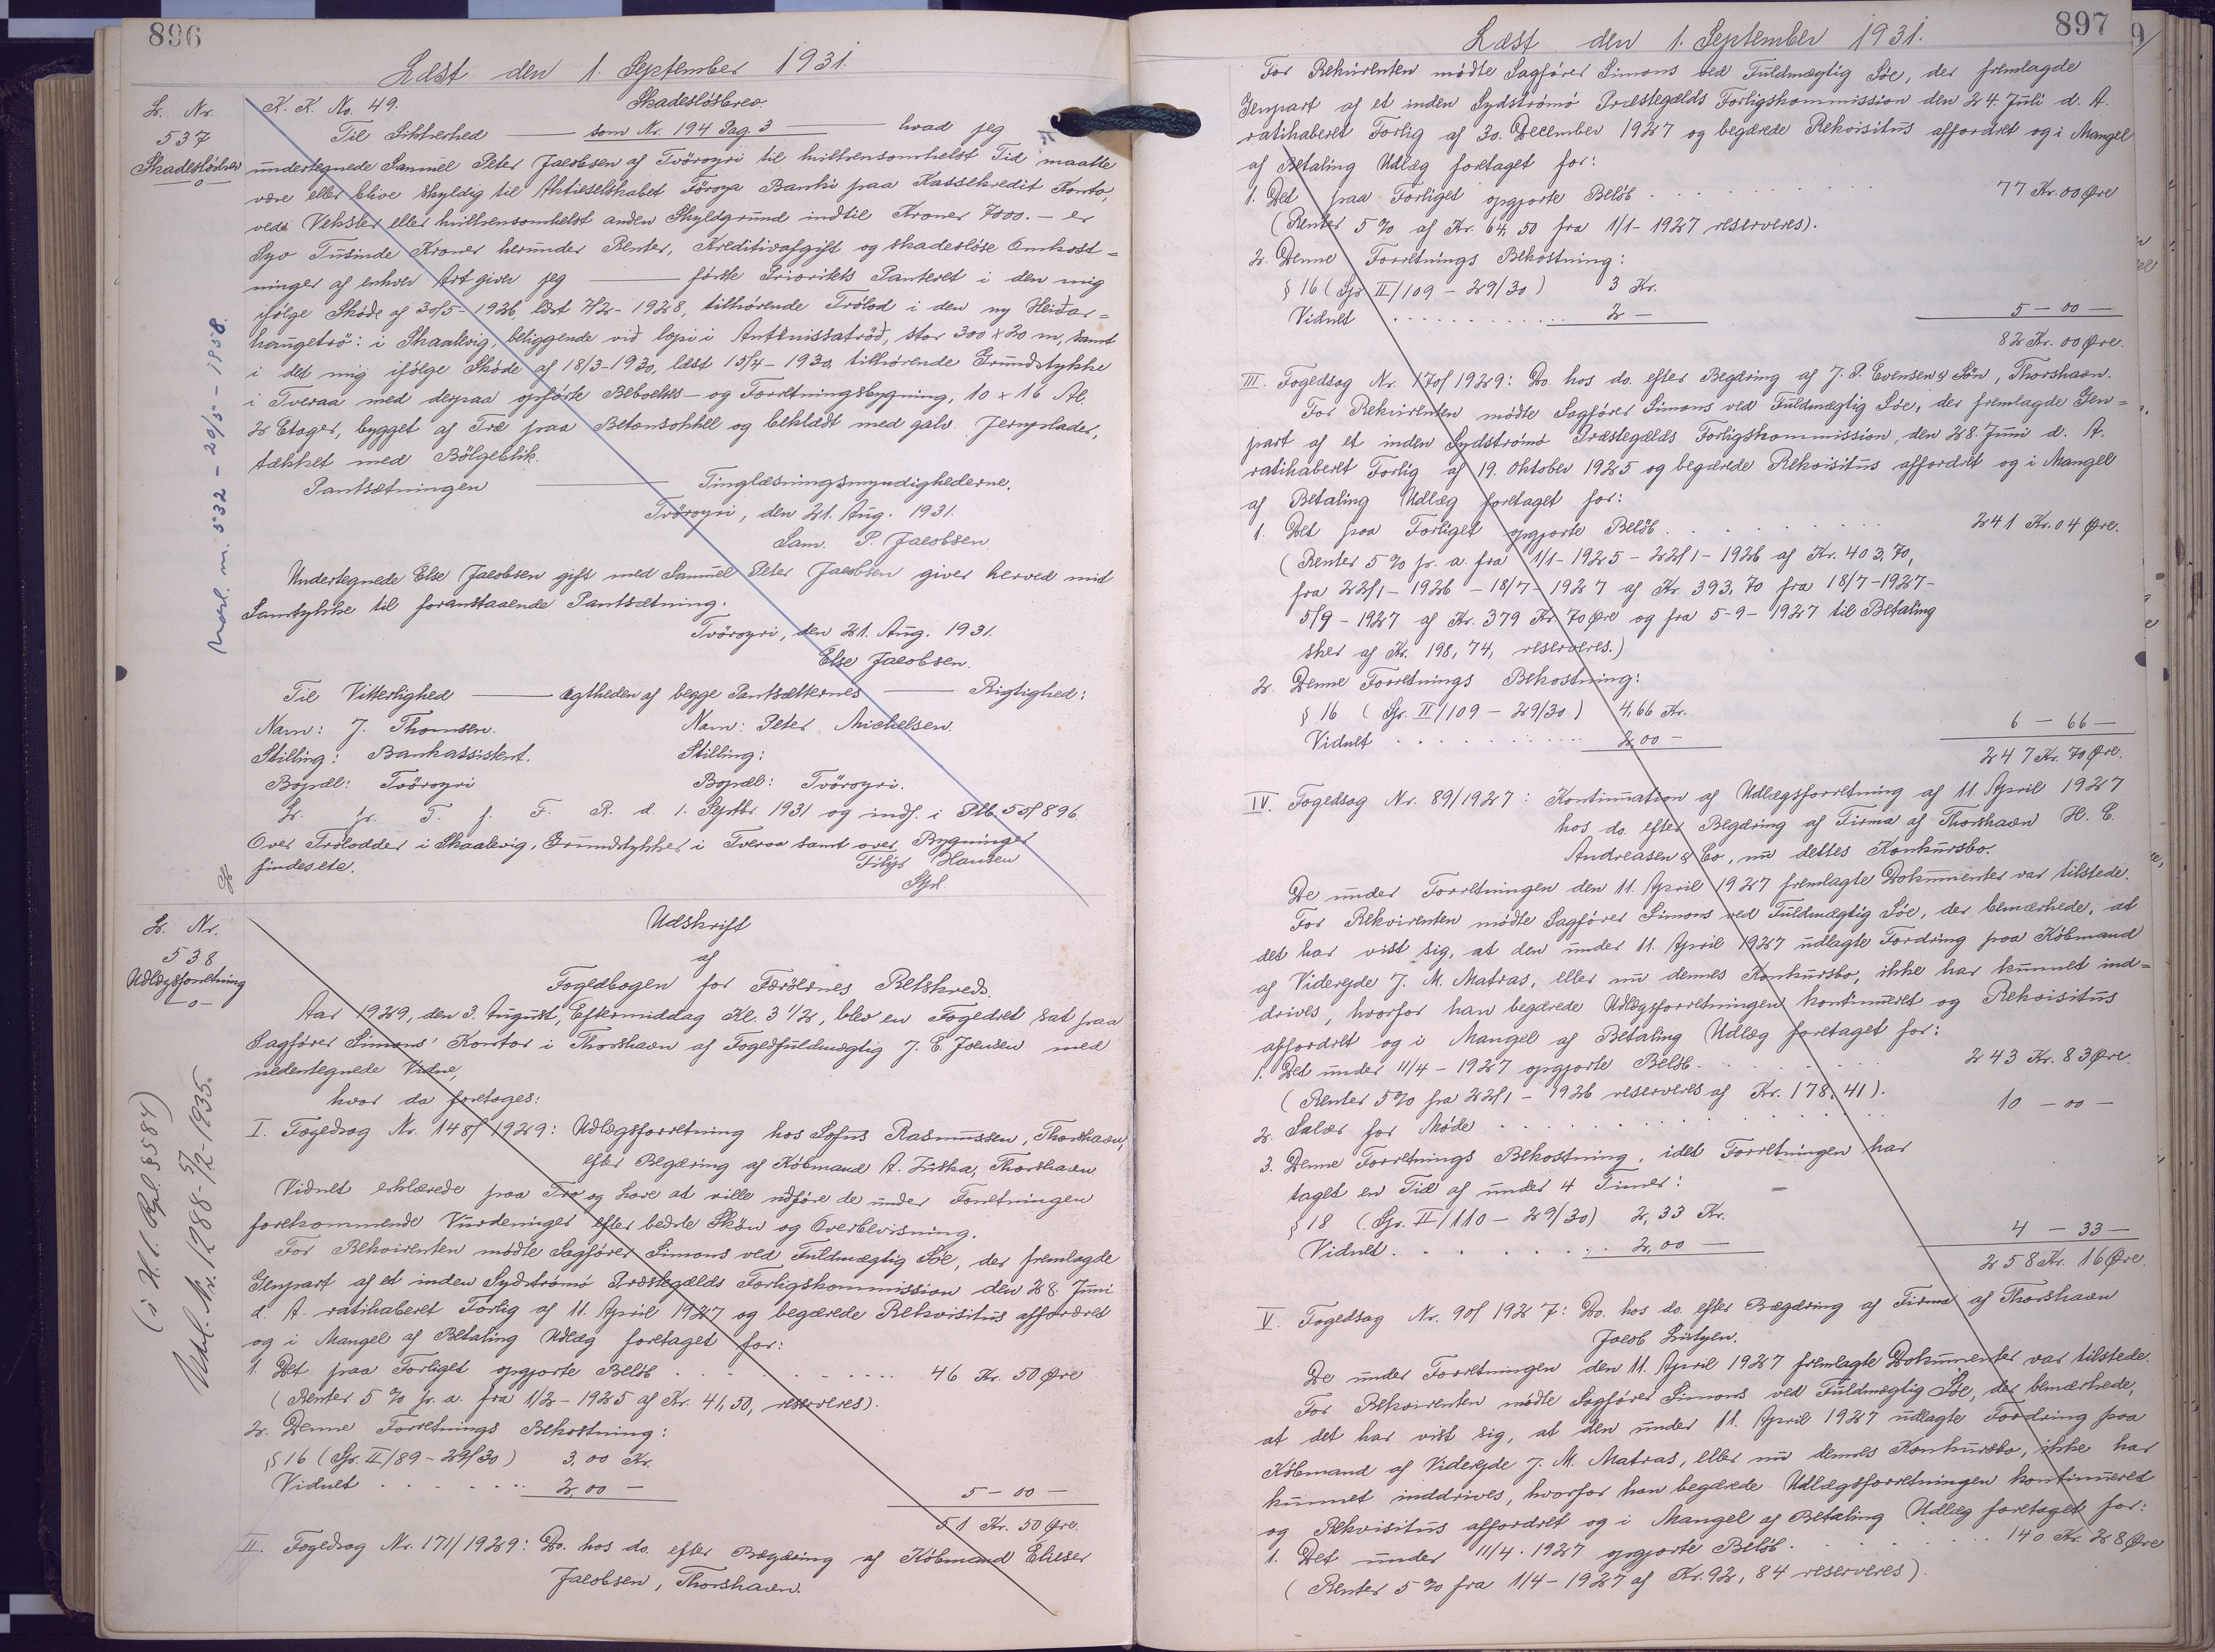 896
Læst den 1. September 1931.
L. Nr.
537
Skadesløsbrev
—o—
K. K. No. 49. Skadesløsbrev.
Til Sikkerhed — som Nr. 194 Pag. 3 — hvad jeg
undertegnede Samuel Peter Jacobsen af Tvöroyri til hvilkensomhelst Tid maatte
være eller blive skyldig til Aktieselskabet Föroya Banki paa Kassekredit Konto,
ved Veksler eller hvilkensomhelst anden Skyldgrund indtil Kroner 7000.- er
Syv Tusinde Kroner herunder Renter, Kreditivafgift og skadesløse Omkost=
ninger af enhver Art giver jeg — første Prioritets Panteret i den mig
ifølge Skøde af 30/5-1926, læst 7/2-1928, tilhørende Trölod i den ny Heiðar=
haugetrö: i Skaalevig, beliggende við lopi i Anttnissatröð, stor 300 x 20 m, samt
i det mig ifølge Skøde af 18/3-1930, læst 15/4-1930, tilhørende Grundstykke
i Tveraa med derpaa opførte Beboelses- og Forretningsbygning, 10 x 16 Al.
2 Etager, bygget af Træ paa Betonsokkel og beklædt med galv. Jernplader,
tækket med Bölgeblik.
Pantsætningen — Tinglæsningsmyndighederne.
Tvöroyri, den 21. Aug. 1931.
Sam. P. Jacobsen
Undertegnede Else Jacobsen gift med Samuel Peter Jacobsen giver herved mit
Samtykke til foranstaaende Pantsætning.
Tvöroyri, den 21. Aug. 1931.
Else Jacobsen.
Til Vitterlighed — ægtheden af begge Pantsætternes — Rigtighed:
Navn: J. Thomsen. Navn: Peter Michelsen.
Stilling: Bankassistent. Stilling:
Bopæl: Tvöroyri Bopæl: Tvöroyri.
L. fr. T. f. F. R. d. 1. Septbr. 1931 og indf. i Ptb. 55/896.
Over Trölodder i Skaalevig, Grundstykker i Tveraa samt over Bygninger
findes etc.
Filip Hansen
Nørl. m. 532 - 29/5-1938.
L. Nr.
538
Udlægsforretning
—o—
Udskrift
af
Fogedbogen for Færøernes Retskreds.
Aar 1929, den 3. August, Eftermiddag Kl. 3 1/2, blev en Fogedret sat paa
Sagfører Simons' Kontor i Thorshavn af Fogedfuldmægtig J. E. Joensen med
nedentegnede Vidne,
hvor da foretoges:
I. Fogedsag Nr. 148/1929: Udlægsforretning hos Sofus Rasmussen, Thorshavn,
efter Begæring af Købmand A. Ziska, Thorshavn
Vidnet erklærede paa Tro og Love at ville udføre de under Forretningen
forekommende Vurderinger efter bedste Skøn og Overbevisning.
For Rekvirenten mødte Sagfører Simons ved Fuldmægtig Søe, der fremlagde
Genpart af et inden Sydstrømø Præstegælds Forligskommission den 28. Juni
d. A. ratihaberet Forlig af 11. April 1927 og begærede Rekvisitus affordret
og i Mangel af Betaling Udlæg foretaget for:
1. Det paa Forliget opgjorte Beløb . . . . . . . . 46 Kr. 50 Øre
(Renter 5 % p. a. fra 1/2-1925 af Kr. 41,50, reserveres).
2. Denne Forretnings Bekostning:
§ 16 (Gr. II/89 - 29/30) 3,00 Kr.
Vidnet . . . . . . 2,00 -
5 - 00 -
51 Kr. 50 Øre.
II. Fogedsag Nr. 171/1929: Do. hos do. efter Begæring af Købmand Elieser
Jacobsen, Thorshavn.
(i H. t. Rpl. § 584)
Udsl. Nr. 1288 - 5/2-1935.
897
Læst den 1. September 1931.
For Rekvirenten mødte Sagfører Simons ved Fuldmægtig Søe, der fremlagde
Genpart af et inden Sydstrømø Præstegælds Forligskommission den 24. Juli d. A.
ratihaberet Forlig af 30. December 1927 og begærede Rekvisitus affordret og i Mangel
af Betaling Udlæg foretaget for:
1. Det paa Forliget opgjorte Beløb . . . . . . . . 77 Kr. 00 Øre
(Renter 5 % af Kr. 64,50 fra 1/1-1927 reserveres).
2. Denne Forretnings Bekostning:
§ 16 (Gr. II/109 - 29/30) 3 Kr.
Vidnet . . . . . . 2 -
5 - 00 -
82 Kr. 00 Øre.
III. Fogedsag Nr. 170/1929: Do. hos do. efter Begæring af J. P. Evensen & Søn, Thorshavn.
For Rekvirenten mødte Sagfører Simons ved Fuldmægtig Søe, der fremlagde Gen=
part af et inden Sydstrømø Præstegælds Forligskommission, den 28. Juni d. A.
ratihaberet Forlig af 19. Oktober 1925 og begærede Rekvisitus affordret og i Mangel
af Betaling Udlæg foretaget for:
1. Det paa Forliget opgjorte Beløb . . . . . . . . 241 Kr. 04 Øre.
(Renter 5 % p. a. fra 1/1-1925 - 22/1-1926 af Kr. 403,70,
fra 22/1-1926 - 18/7-1927 af Kr. 393,70 fra 18/7-1927-
5/9-1927 af Kr. 379 Kr. 70 Øre og fra 5-9-1927 til Betaling
sker af Kr. 198,74, reserveres.)
2. Denne Forretnings Bekostning:
§ 16 (Gr. II/109 - 29/30) 4,66 Kr.
Vidnet . . . . . . 2,00 -
6 - 66 -
247 Kr. 70 Øre.
IV. Fogedsag Nr. 89/1927: Kontinuation af Udlægsforretning af 11. April 1927
hos do. efter Begæring af Firma af Thorshavn H. C.
Andreasen & Co., nu dettes Konkursbo.
De under Forretningen den 11. April 1927 fremlagte Dokumenter var tilstede.
For Rekvirenten mødte Sagfører Simons ved Fuldmægtig Søe, der bemærkede, at
det har vist sig, at den under 11. April 1927 udlagte Fordring paa Købmand
af Viderejde J. M. Matras, eller nu dennes Konkursbo, ikke har kunnet ind=
drives, hvorfor han begærede Udlægsforretningen kontinueret og Rekvisitus
affordret og i Mangel af Betaling Udlæg foretaget for:
1. Det under 11/4-1927 opgjorte Beløb . . . . . . 243 Kr. 83 Øre.
(Renter 5 % fra 22/1-1926 reserveres af Kr. 178,41).
2. Salær for Møde . . . . . . . . 10 - 00 -
3. Denne Forretnings Bekostning, idet Forretningen har
taget en Tid af under 4 Timer:
§ 18 (Gr. II/110 - 29/30) 2,33 Kr.
Vidnet . . . . . . 2,00 -
4 - 33 -
258 Kr. 16 Øre.
V. Fogedsag Nr. 90/1927: Do. hos do. efter Begæring af Firma af Thorshavn
Jacob Lützen.
De under Forretningen den 11. April 1927 fremlagte Dokumenter var tilstede.
For Rekvirenten mødte Sagfører Simons ved Fuldmægtig Søe, der bemærkede,
at det har vist sig, at den under 11. April 1927 udlagte Fordring paa
Købmand af Viderejde J. M. Matras, eller nu dennes Konkursbo, ikke har
kunnet inddrives, hvorfor han begærede Udlægsforretningen kontinueret
og Rekvisitus affordret og i Mangel af Betaling Udlæg foretaget for:
1. Det under 11/4-1927 opgjorte Beløb . . . . . . 140 Kr. 28 Øre
(Renter 5 % fra 1/4-1927 af Kr. 92,84 reserveres).